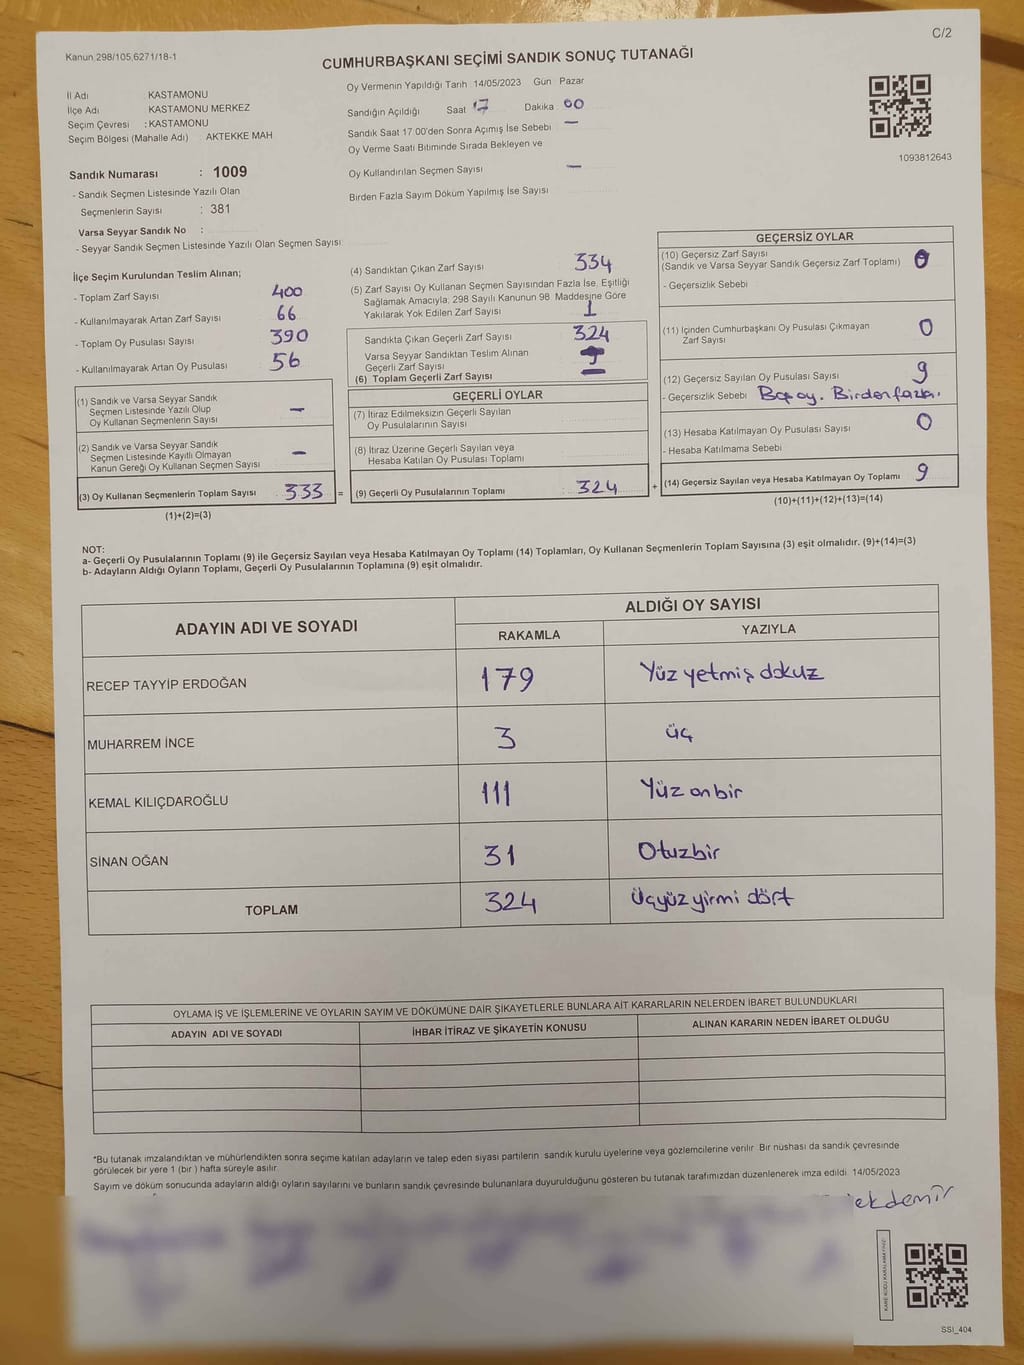 C/2
Kanun:298/105,6271/18-1
CUMHURBAŞKANI SEÇİMİ SANDIK SONUÇ TUTANAĞI
İl Adı KASTAMONU
İlçe Adı KASTAMONU MERKEZ
Seçim Çevresi : KASTAMONU
Seçim Bölgesi (Mahalle Adı) : AKTEKKE MAH
Oy Vermenin Yapıldığı Tarih 14/05/2023 Gün : Pazar
Sandığın Açıldığı Saat 17 Dakika 00
Sandık Saat 17 00'den Sonra Açımış İse Sebebi —
Oy Verme Saati Bitiminde Sırada Bekleyen ve
Oy Kullandırılan Seçmen Sayısı —
Birden Fazla Sayım Döküm Yapılmış İse Sayısı
1093812643
Sandık Numarası : 1009
- Sandık Seçmen Listesinde Yazılı Olan
Seçmenlerin Sayısı : 381
Varsa Seyyar Sandık No :
- Seyyar Sandık Seçmen Listesinde Yazılı Olan Seçmen Sayısı:
İlçe Seçim Kurulundan Teslim Alınan;
- Toplam Zarf Sayısı 400
- Kullanılmayarak Artan Zarf Sayısı 66
- Toplam Oy Pusulası Sayısı 390
- Kullanılmayarak Artan Oy Pusulası 56
(1) Sandık ve Varsa Seyyar Sandık
Seçmen Listesinde Yazılı Olup
Oy Kullanan Seçmenlerin Sayısı —
(2) Sandık ve Varsa Seyyar Sandık
Seçmen Listesinde Kayıtlı Olmayan
Kanun Gereği Oy Kullanan Seçmen Sayısı —
(3) Oy Kullanan Seçmenlerin Toplam Sayısı 333 =
(1)+(2)=(3)
(4) Sandıktan Çıkan Zarf Sayısı 334
(5) Zarf Sayısı Oy Kullanan Seçmen Sayısından Fazla İse, Eşitliği
Sağlamak Amacıyla, 298 Sayılı Kanunun 98 Maddesine Göre
Yakılarak Yok Edilen Zarf Sayısı 1
Sandıkta Çıkan Geçerli Zarf Sayısı 324
Varsa Seyyar Sandıktan Teslim Alınan
Geçerli Zarf Sayısı
(6) Toplam Geçerli Zarf Sayısı
GEÇERLİ OYLAR
(7) İtiraz Edilmeksizin Geçerli Sayılan
Oy Pusulalarının Sayısı
(8) İtiraz Üzerine Geçerli Sayılan veya
Hesaba Katılan Oy Pusulası Toplamı
(9) Geçerli Oy Pusulalarının Toplamı : 324 +
GEÇERSİZ OYLAR
(10) Geçersiz Zarf Sayısı
(Sandık ve Varsa Seyyar Sandık Geçersiz Zarf Toplamı) 0
- Geçersizlik Sebebi
(11) İçinden Cumhurbaşkanı Oy Pusulası Çıkmayan
Zarf Sayısı 0
(12) Geçersiz Sayılan Oy Pusulası Sayısı 9
- Geçersizlik Sebebi Boş oy. Birden fazla.
(13) Hesaba Katılmayan Oy Pusulası Sayısı 0
- Hesaba Katılmama Sebebi
(14) Geçersiz Sayılan veya Hesaba Katılmayan Oy Toplamı 9
(10)+(11)+(12)+(13)=(14)
NOT:
a- Geçerli Oy Pusulalarının Toplamı (9) ile Geçersiz Sayılan veya Hesaba Katılmayan Oy Toplamı (14) Toplamları, Oy Kullanan Seçmenlerin Toplam Sayısına (3) eşit olmalıdır. (9)+(14)=(3)
b- Adayların Aldığı Oyların Toplamı, Geçerli Oy Pusulalarının Toplamına (9) eşit olmalıdır.
ADAYIN ADI VE SOYADI
ALDIĞI OY SAYISI
RAKAMLA YAZIYLA
RECEP TAYYİP ERDOĞAN 179 Yüz yetmiş dokuz
MUHARREM İNCE 3 üç
KEMAL KILIÇDAROĞLU 111 Yüz onbir
SİNAN OĞAN 31 Otuzbir
TOPLAM 324 Üçyüz yirmi dört
OYLAMA İŞ VE İŞLEMLERİNE VE OYLARIN SAYIM VE DÖKÜMÜNE DAİR ŞİKAYETLERLE BUNLARA AİT KARARLARIN NELERDEN İBARET BULUNDUKLARI
ADAYIN ADI VE SOYADI İHBAR İTİRAZ VE ŞİKAYETİN KONUSU ALINAN KARARIN NEDEN İBARET OLDUĞU
*Bu tutanak imzalandıktan ve mühürlendikten sonra seçime katılan adayların ve talep eden siyasi partilerin sandık kurulu üyelerine veya gözlemcilerine verilir Bir nüshası da sandık çevresinde
görülecek bir yere 1 (bir ) hafta süreyle asılır.
Sayım ve döküm sonucunda adayların aldığı oyların sayılarını ve bunların sandık çevresinde bulunanlara duyurulduğunu gösteren bu tutanak tarafımızdan düzenlenerek imza edildi 14/05/2023
ekdemir
KARE KODU KARALAMAYINIZ!
SSI_404